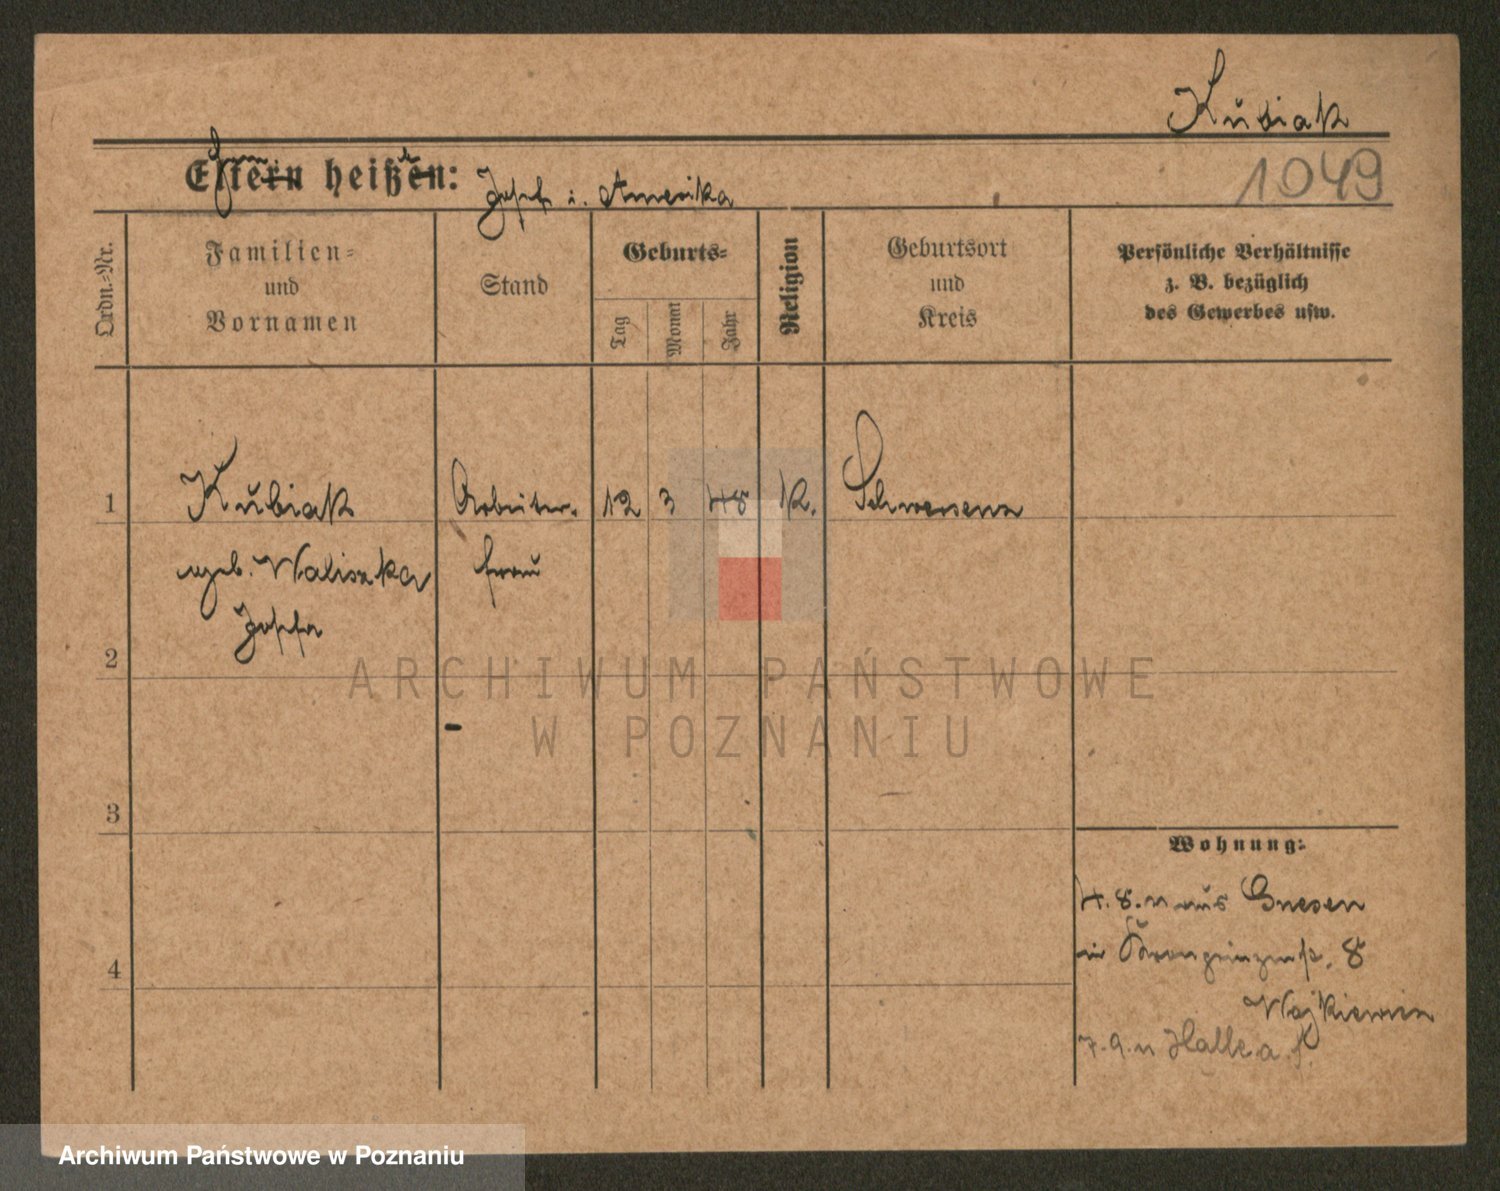 Kubiak
1049
Eltern heißen: Joseph i. Amerika
Ordn.-Nr.
Familien-
und
Vornamen
Stand
Geburts-
Tag
Monat
Jahr
Religion
Geburtsort
und
Kreis
Persönliche Verhältnisse
z. B. bezüglich
des Gewerbes usw.
1
Kubiak Arbeiter- 12 3 48 K. Schwersenz
geb. Waliszka frau
Josefa
2
3
4
Wohnung:
4.8.11 aus Gnesen
in Kronprinzenst. 8
7.9.11 Halle a. S.
ARCHIWUM PAŃSTWOWE
W POZNANIU
Archiwum Państwowe w Poznaniu